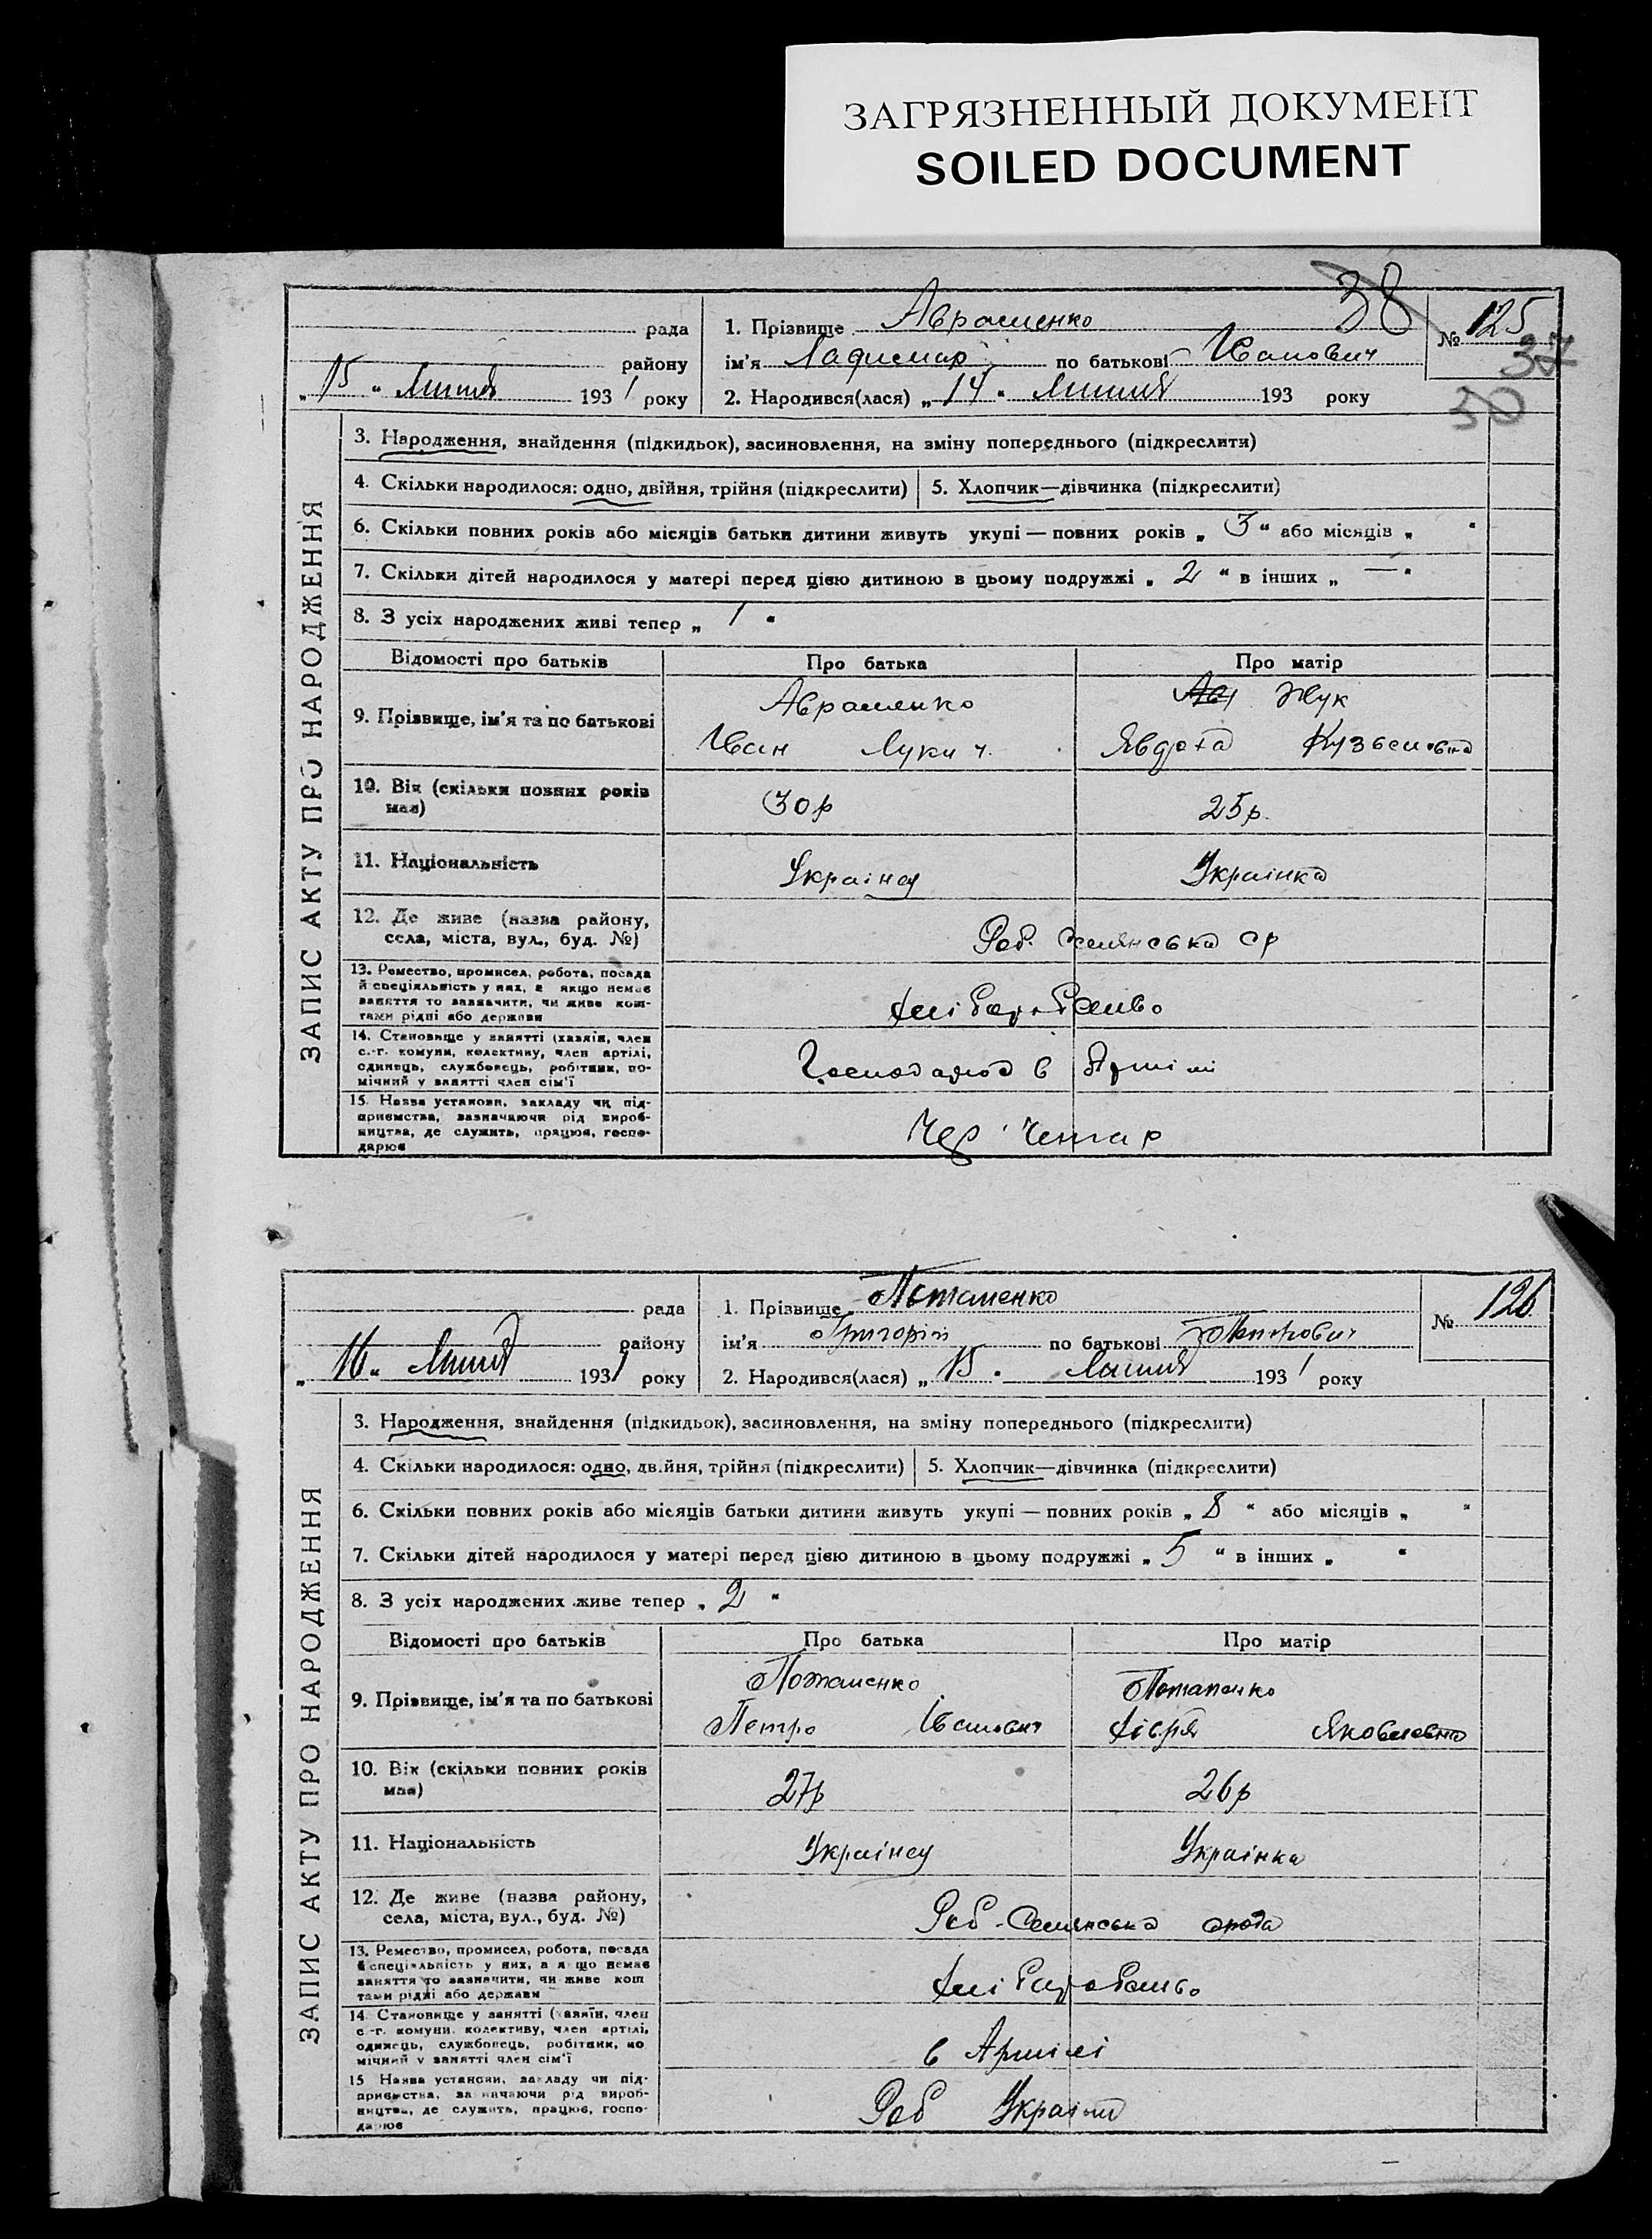 ЗАГРЯЗНЕННЫЙ ДОКУМЕНТ
SOILED DOCUMENT
38
рада
району
„ 15 " Липня 1931 року
1. Прізвище Авраменко
ім'я Ладимир по батькові Иванович
2. Народився(лася) „ 14 " Липня 193 року
№ 125
37
30
ЗАПИС АКТУ ПРО НАРОДЖЕННЯ
3. Народження, знайдення (підкидьок), засиновлення, на зміну попереднього (підкреслити)
4. Скільки народилося: одно, двійня, трійня (підкреслити) 5. Хлопчик—дівчинка (підкреслити)
6. Скільки повних років або місяців батьки дитини живуть укупі — повних років „ 3 " або місяців „ "
7. Скільки дітей народилося у матері перед цією дитиною в цьому подружжі „ 2 " в інших „ — "
8. З усіх народжених живі тепер „ 1 "
Відомості про батьків Про батька Про матір
9. Прізвище, ім'я та по батькові
Авраменко
Иван Лукич
Жук
Явдоха Кузьмовна
10. Вік (скільки повних років має)
30р
25р.
11. Національність
Українец
Українка
12. Де живе (назва району,
села, міста, вул., буд. №)
Роб. Селянська ср
13. Ремество, промисел, робота, посада
й спеціяльність у них, а якщо немає
заняття то зазначити, чи живе кош-
тами рідні або держави
Хліборобство
14. Становище у занятті (хазяїн, член
с.-г. комуни, колективу, член артілі,
одинець, службовець, робітник, по-
мічний у занятті член сім'ї
в Артілі
15. Назва установи, закладу чи під-
приємства, зазначаючи рід вироб-
ництва, де служить, працює, госпо-
дарює
рада
району
„ 16 " Липня 1931 року
1. Прізвище Потапенко
ім'я Григорій по батькові Петрович
2. Народився(лася) „ 15 " Липня 1931 року
№ 126
ЗАПИС АКТУ ПРО НАРОДЖЕННЯ
3. Народження, знайдення (підкидьок), засиновлення, на зміну попереднього (підкреслити)
4. Скільки народилося: одно, двійня, трійня (підкреслити) 5. Хлопчик—дівчинка (підкреслити)
6. Скільки повних років або місяців батьки дитини живуть укупі — повних років „ 8 " або місяців „ "
7. Скільки дітей народилося у матері перед цією дитиною в цьому подружжі „ 5 " в інших „ "
8. З усіх народжених живе тепер „ 2 "
Відомості про батьків Про батька Про матір
9. Прізвище, ім'я та по батькові
Потапенко
Петро Иванович
Потапенко
Яковлевна
10. Вік (скільки повних років має)
27р
26р
11. Національність
Українец
Українка
12. Де живе (назва району,
села, міста, вул., буд. №)
Роб. Селянська
13. Ремество, промисел, робота, посада
й спеціяльність у них, а якщо немає
заняття то зазначити, чи живе кош
тами рідні або держави
Хліборобство
14. Становище у занятті (хазяїн, член
с.-г. комуни, колективу, член артілі,
одинець, службовець, робітник, по
мічний у занятті член сім'ї
в Артілі
15 Назва установи, закладу чи під-
приємства, зазначаючи рід вироб-
ництва, де служить, працює, госпо-
дарює
Роб